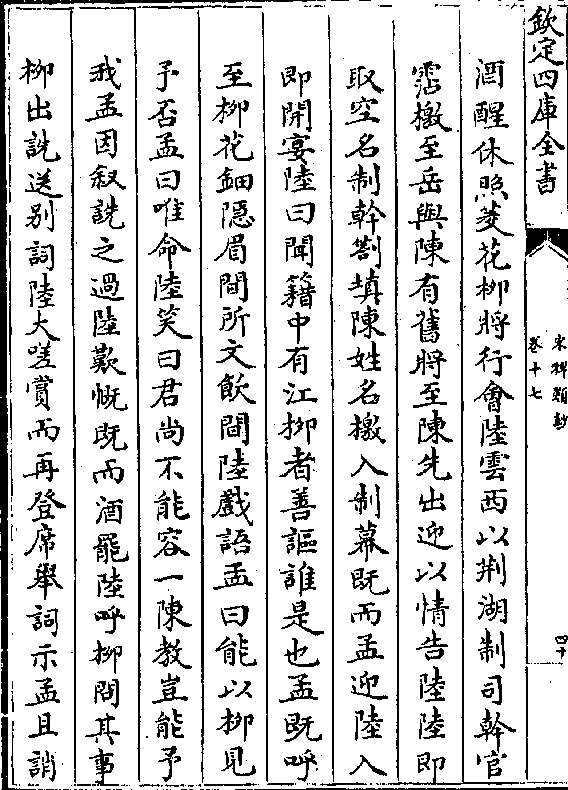 欽定四庫全書
宋稗類鈔
卷十七
四十
酒醒休照菱花柳將行會陸雲西以荆湖制司幹官
霑檄至岳與陳有舊將至陳先出迎以情告陸陸即
取空名制幹劄填陳姓名檄入制幕既而孟迎陸入
即開宴陸曰聞籍中有江柳者善謳誰是也孟既呼
至柳花鈿隱眉間所文飲間陸戲語孟曰能以柳見
予否孟曰唯命陸笑曰君尚不能容一陳教豈能予
我孟因叙説之過陸歎慨既而酒罷陸呼柳問其事
柳出説送别詞陸大嗟賞而再登席舉詞示孟且誚